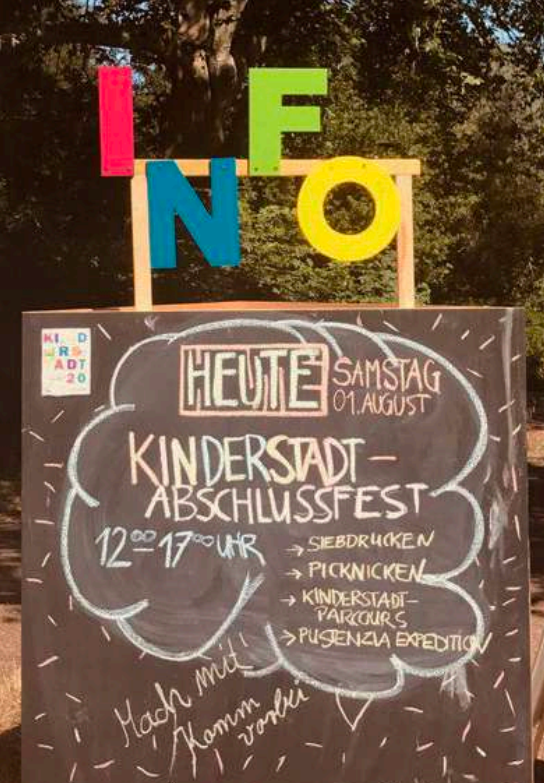 INFO
KINDERSTADT
20
HEUTE
SAMSTAG
01.AUGUST
KINDERSTADT-
ABSCHLUSSFEST
12⁰⁰-17⁰⁰ UHR
→ SIEBDRUCKEN
→ PICKNICKEN
→ KINDERSTADT-
PARCOURS
→ PUSTENZIA EXPEDITION
Mach mit
Komm
vorbei